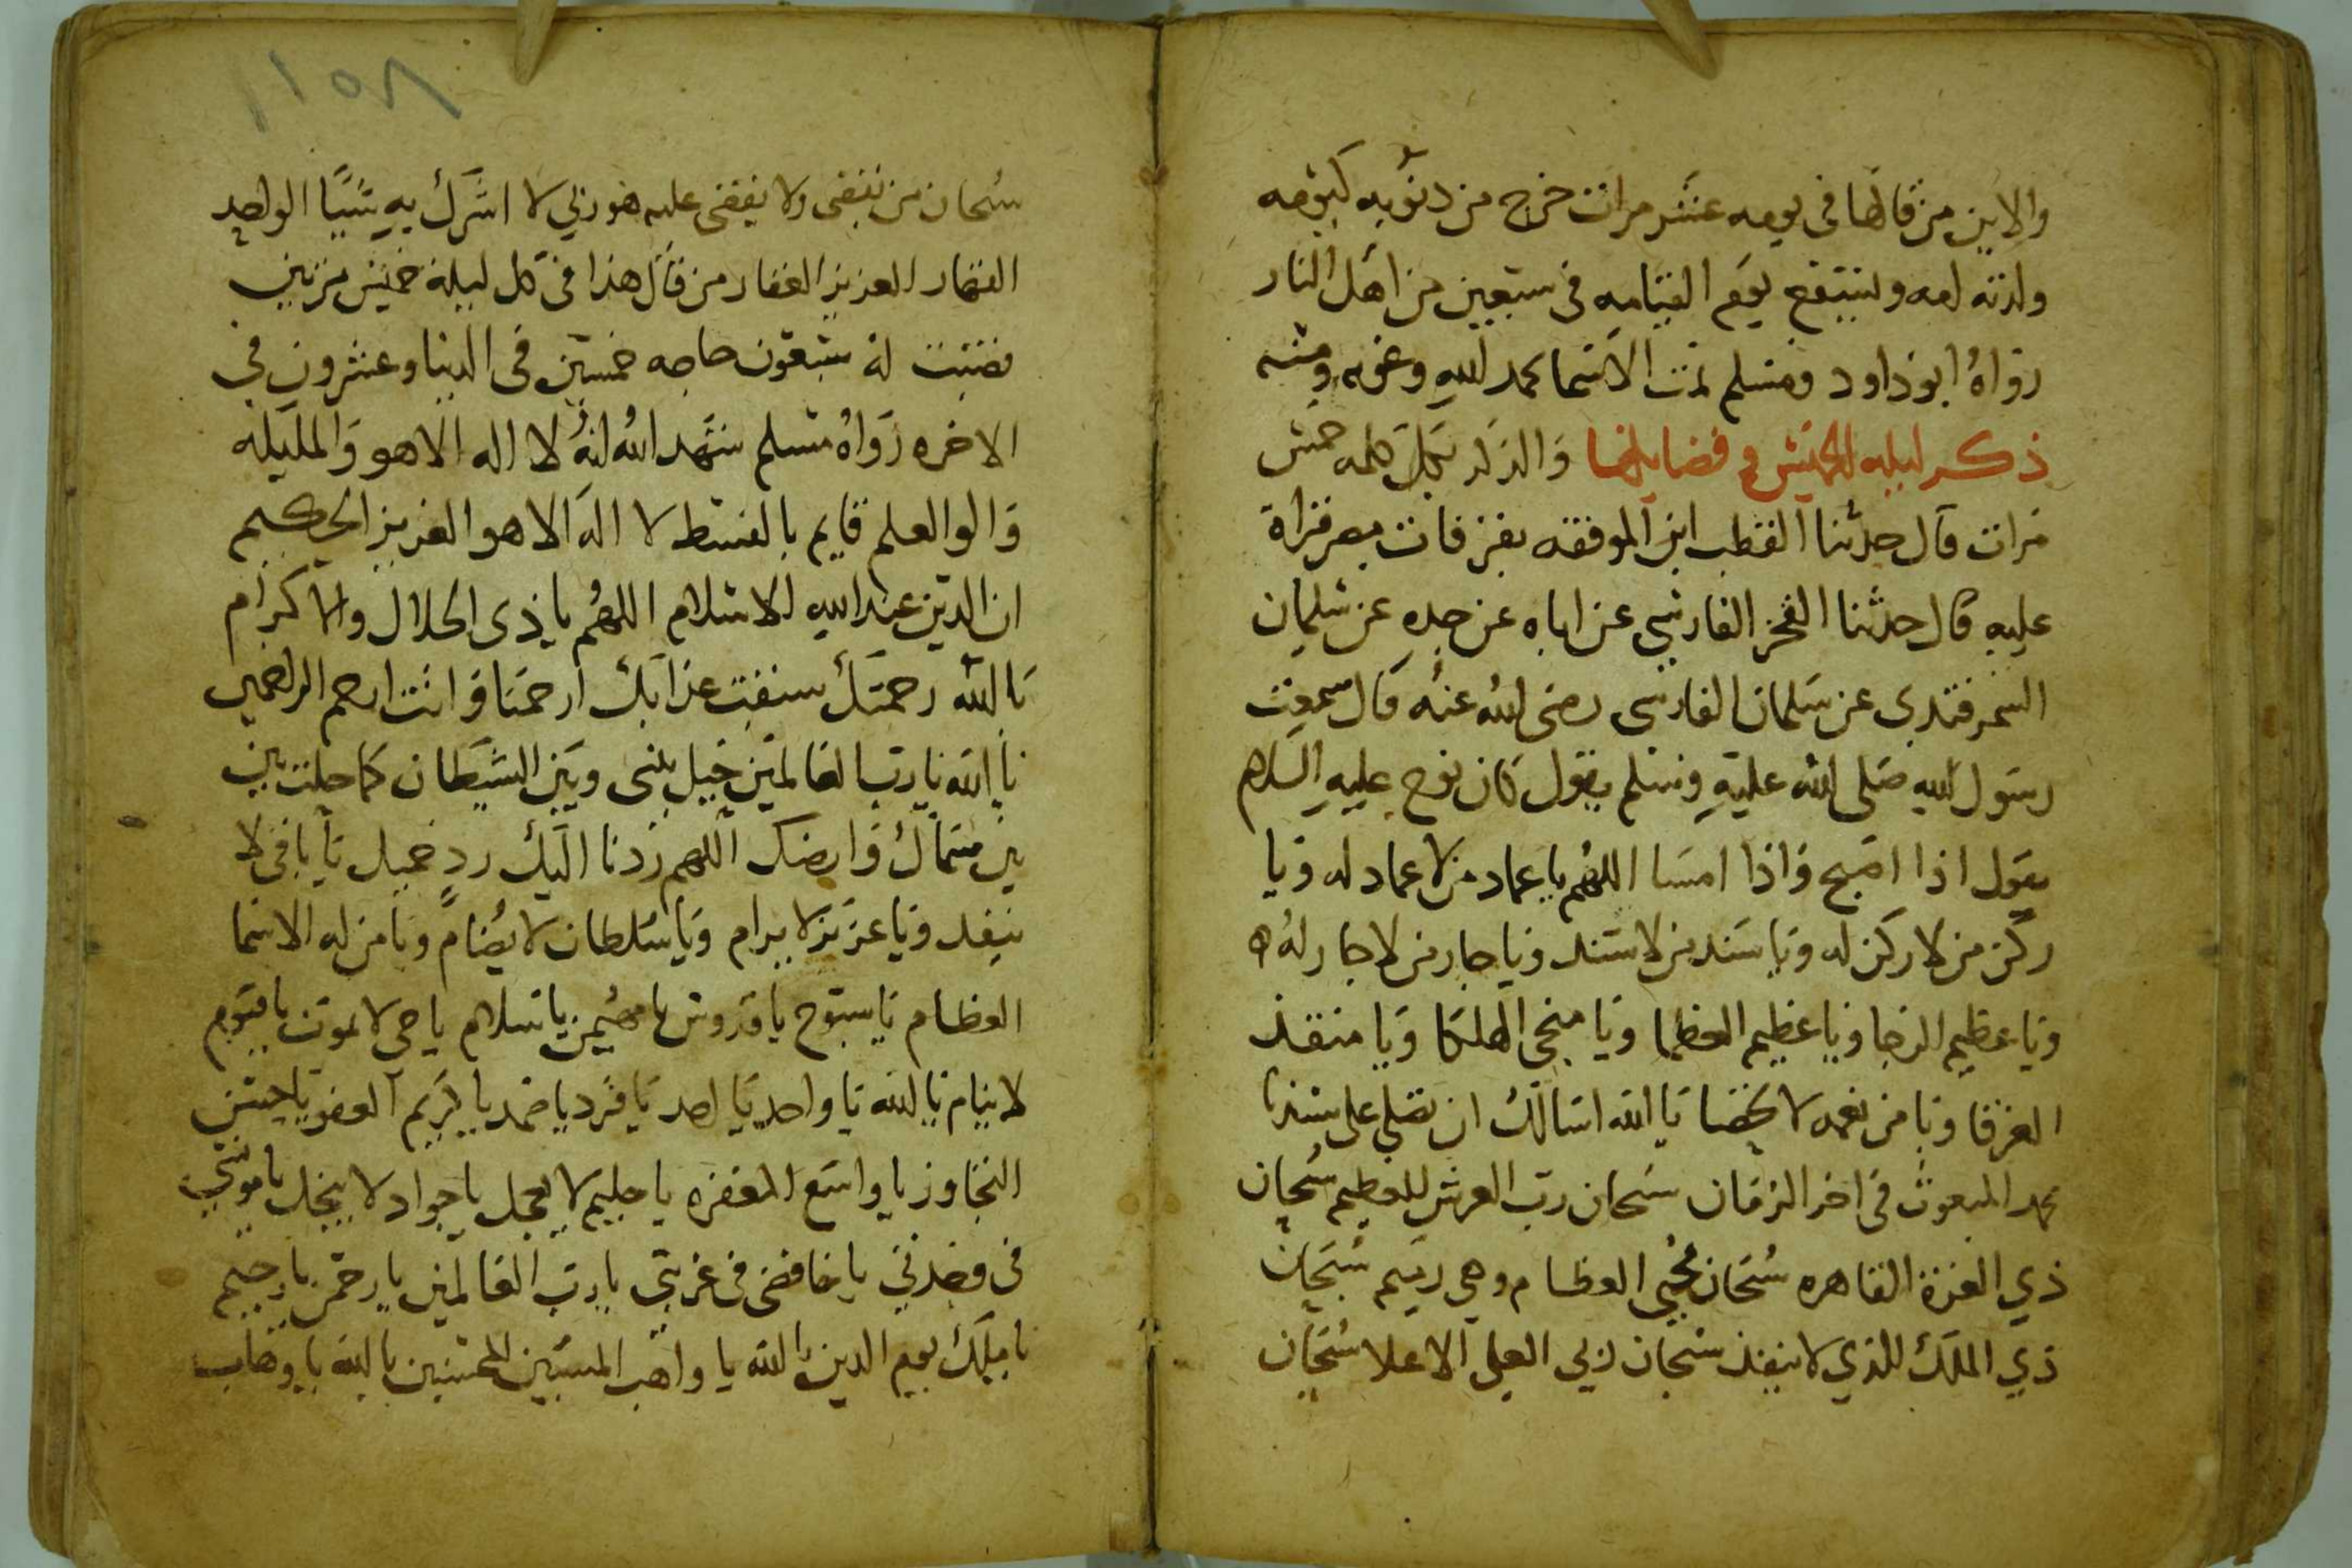 والاين من قالها في يومه عشر مرات خرج من دنوبه كيومه
ولدته امه وليشفع يوم القيامه في سبعين من اهل النار
رواه ابو داود ومسلم تمت الاسما بحمد الله وعونه ومنه
ذكر ليله الخميس وفضايلها والذكر بكل كلمه خمس
مرات قال حدثنا القطب ابن الموفقه بعرفات بمصر قراة
عليه قال حدثنا الفخر الفارسي عن اباه عن جده عن سليمان
السمرقندي عن سلمان الفارسي رضي الله عنه قال سمعت
رسول الله صلى الله عليه وسلم يقول كان نوح عليه السلام
يقول اذا اصبح واذا امسا اللهم يا عماد من لا عماد له ويا
ركن من لا ركن له ويا سند من لا سند ويا جار من لا جار له
ويا عظيم الرجا ويا عظيم العظما ويا منجي الهلكا ويا منقذ
الغرقا ويا من نعمه لا تحصا يا الله اسالك ان تصلي على سيدنا
محمد المبعوث في اخر الزمان سبحان رب العرش العظيم سبحان
ذي العزة القاهره سبحان محيي العظام وهي رميم سبحان
ذي الملك الذي لا ينفذ سبحان ربي العلي الاعلا سبحان
١١٥٨
سبحان من يقضي ولا يقضى عليه هو ربي لا اشرك به شيا الواحد
القهار العزيز الغفار من قال هذا في كل ليلة خميس مرتين
قضيت له سبعون حاجه خمسين في الدنيا وعشرون في
الاخره رواه مسلم شهد الله انه لا اله الا هو والمليكه
والوا العلم قايم بالقسط لا اله الا هو العزيز الحكيم
ان الدين عند الله الاسلام اللهم يا ذي الجلال والاكرام
يا الله رحمتك سبقت عذابك ارحمنا وانت ارحم الراحمين
يا الله يا رب العالمين حيل بيني وبين الشيطان كما حلت بين
بين سماك وارضك اللهم ردنا اليك رد جميل يا باقي لا
ينفد ويا عزيز لا يرام ويا سلطان لا يضام ويا من له الاسما
العظام يا سبوح يا قدوس يا مهيمن يا سلام يا حي لا يموت يا قيوم
لا ينام يا الله يا واحد يا احد يا فرد يا صمد يا كريم العفو يا حسن
التجاوز يا واسع المغفره يا حليم لا يعجل يا جواد لا يبخل يا مونسي
في وحدتي يا حافضي في غربتي يا رب العالمين يا رحمن يا رحيم
يا مليك يوم الدين يا الله يا واهب المسيين المحسنين يا الله يا وهاب